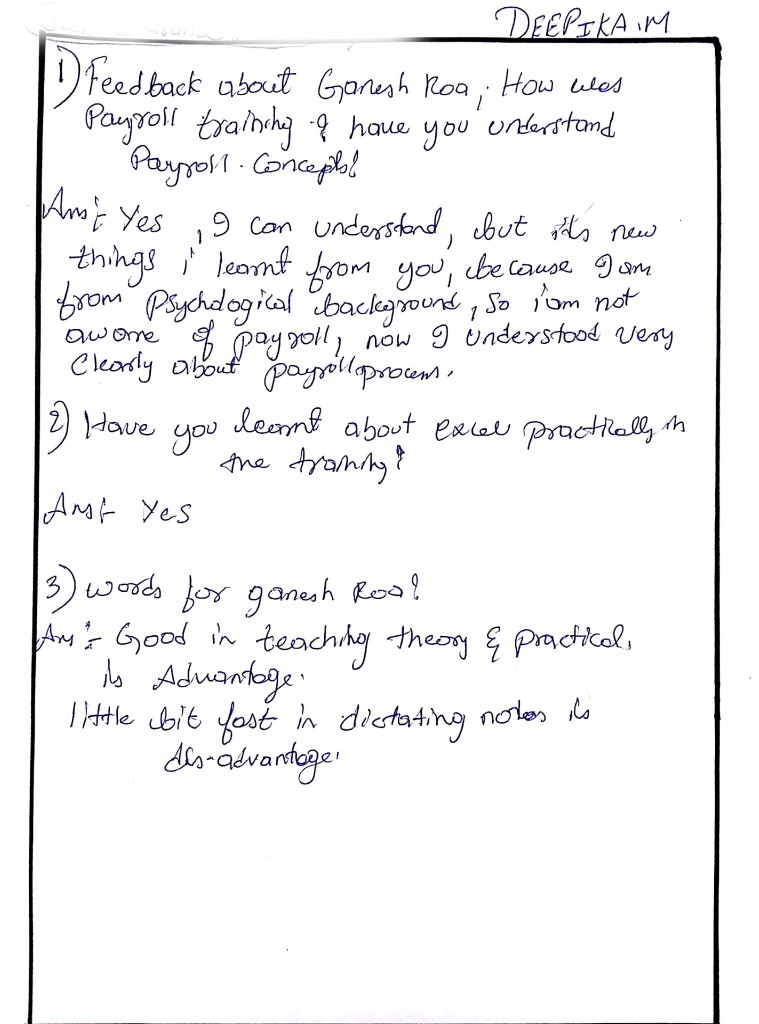 DEEPIKA.M
1) Feedback about Ganesh Roa, How was
Payroll training & have you understand
Payroll concepts?
Ans:- Yes, I can understand, but its new
things i learnt from you, because I am
from psychological background, so i'am not
aware of payroll, now I understood very
clearly about payroll process.
2) Have you learnt about excel practically in
the training?
Ans:- Yes
3) words for ganesh Roa?
Ans:- Good in teaching theory & practical,
is Advantage.
little bit fast in dictating notes is
dis-advantage.